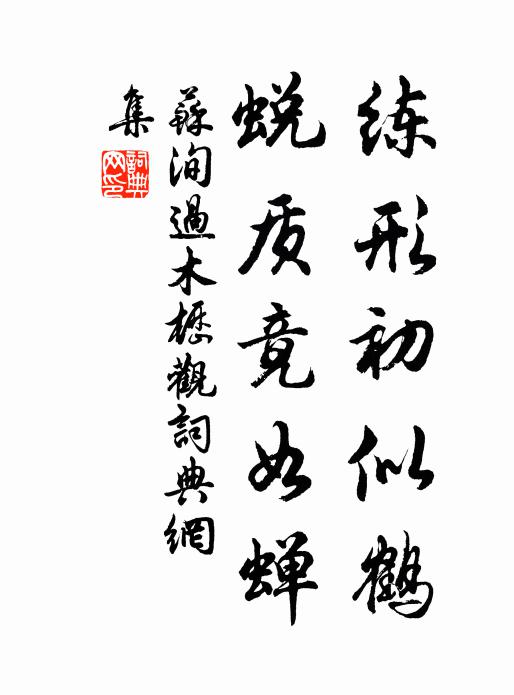 练形初似鹤
蜕质竟如蝉
蘇洵過木櫪觀詞典網
集
詞典
网印